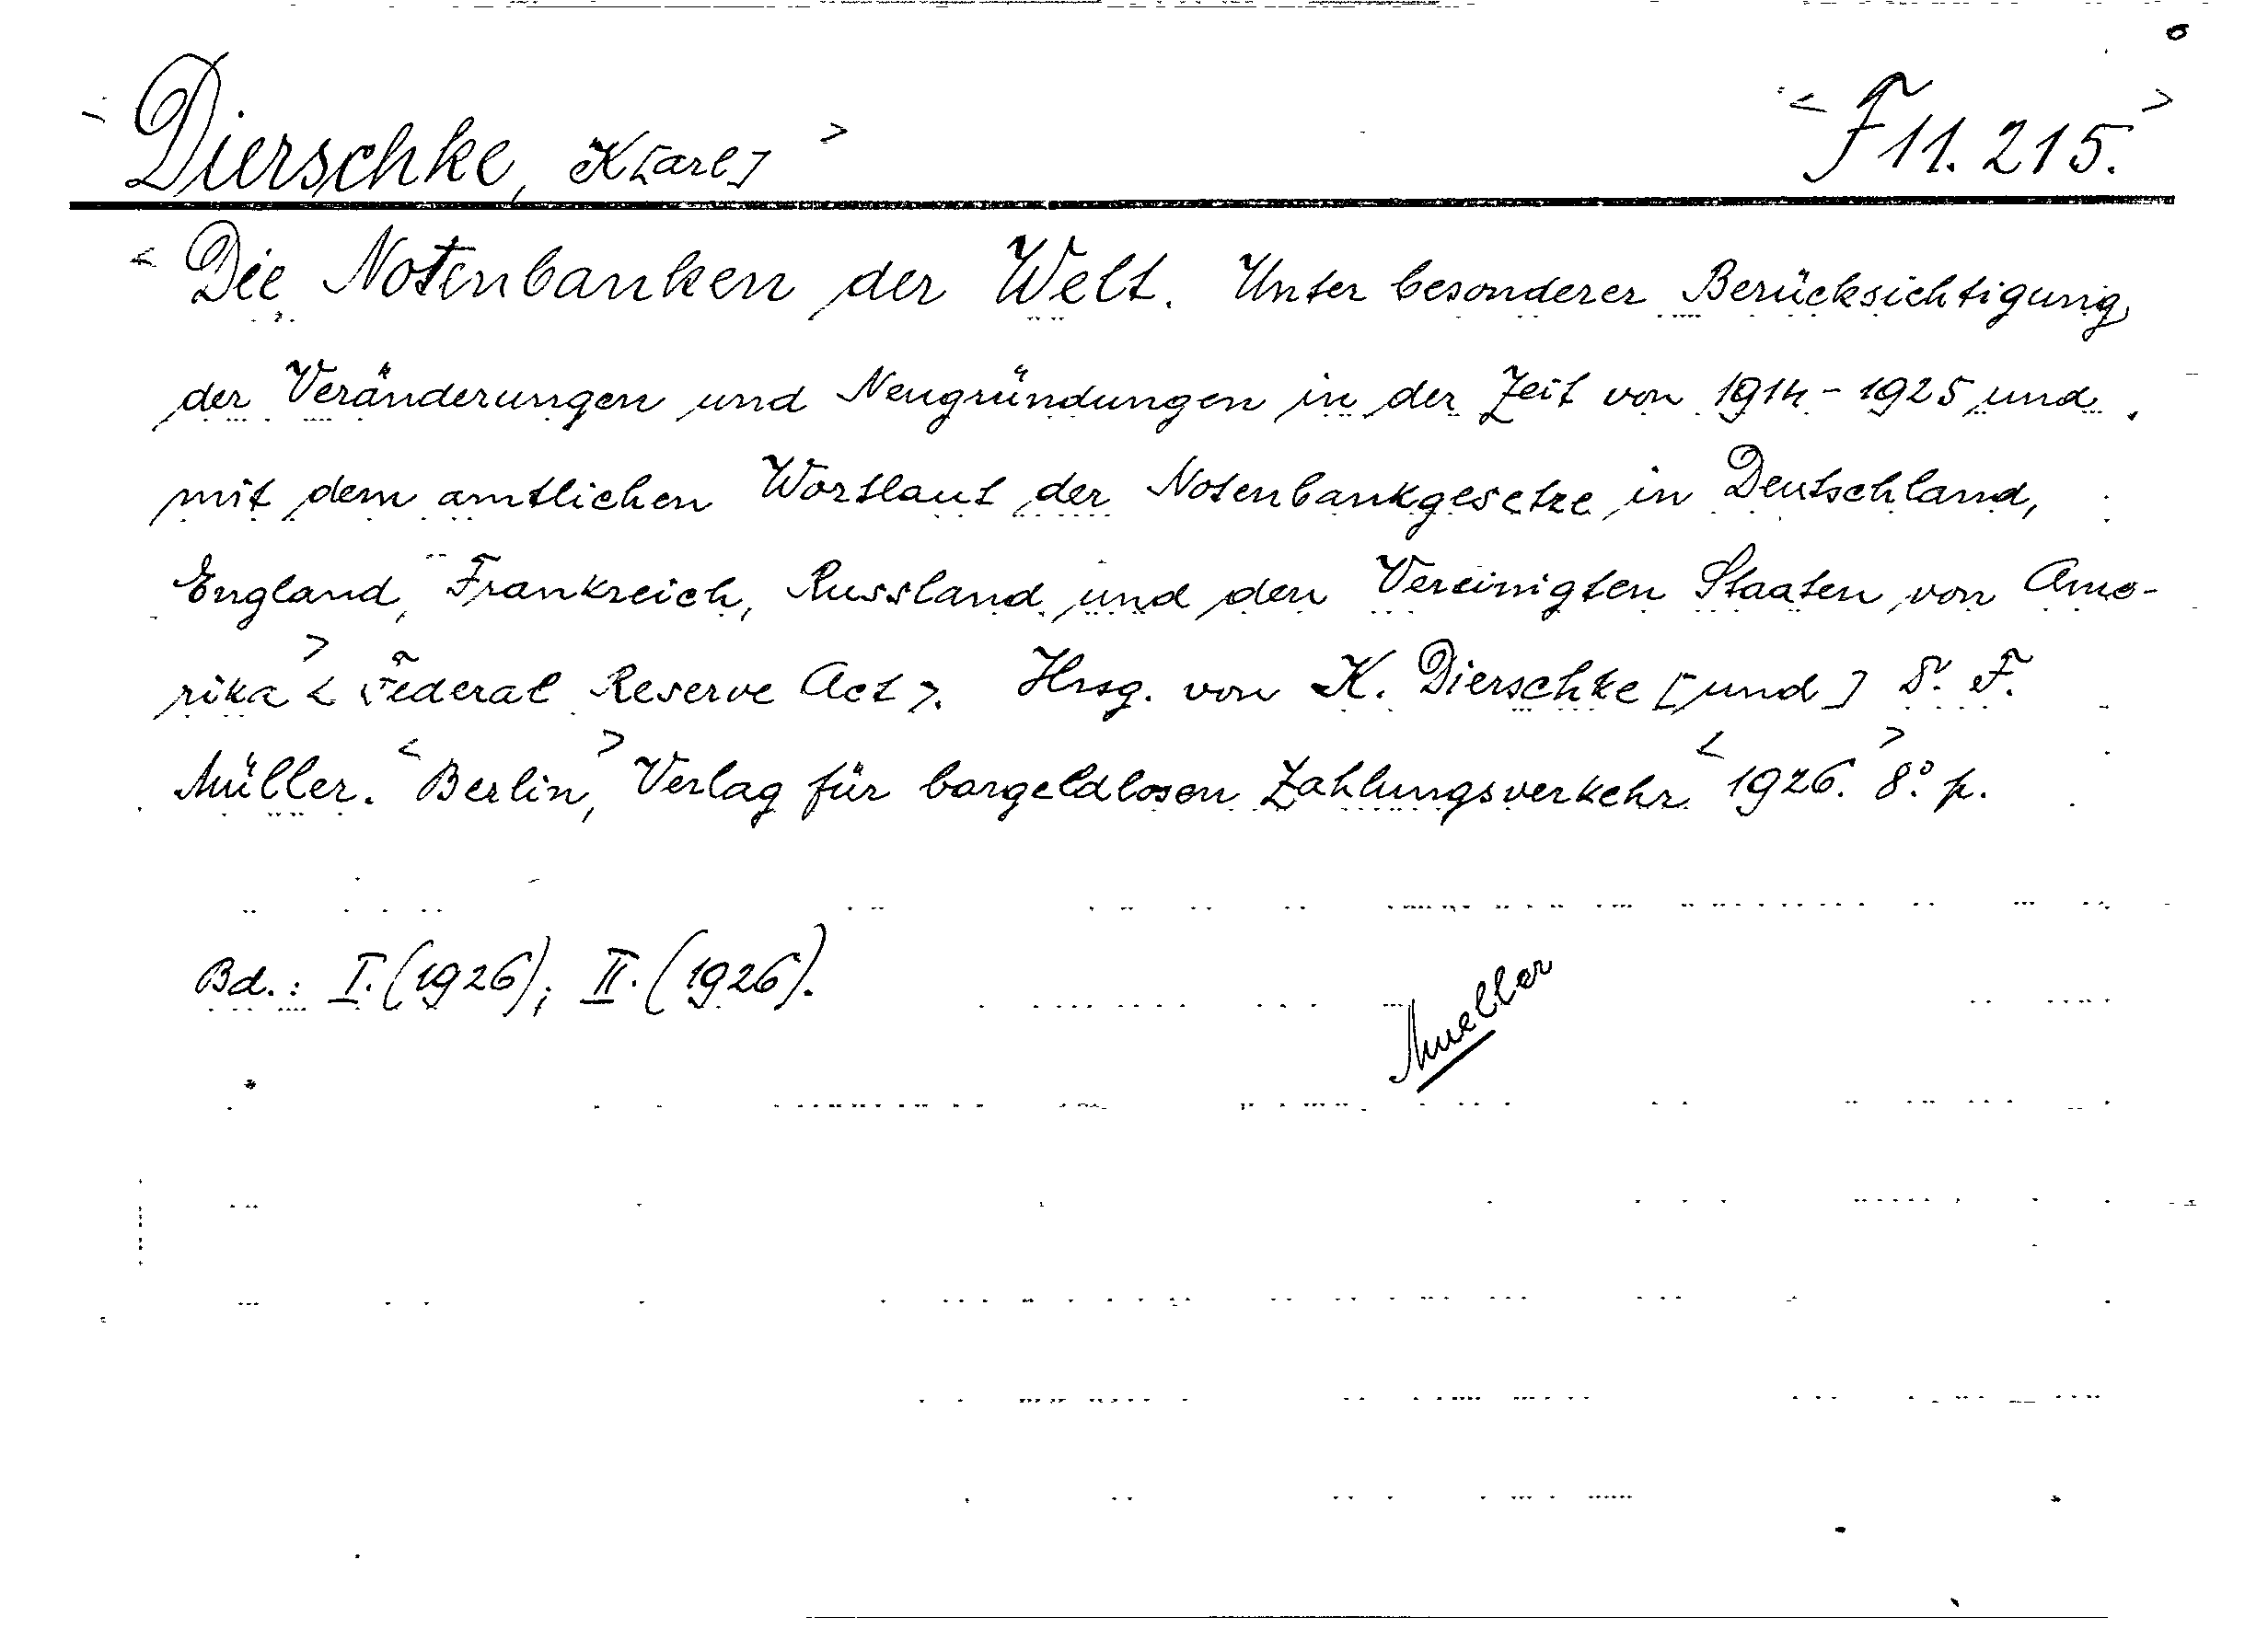 Dierschke, K[arl] <F 11.215.>
<Die Notenbanken der Welt. Unter besonderer Berücksichtigung
der Veränderungen und Neugründungen in der Zeit von 1914-1925 und
mit dem amtlichen Wortlaut der Notenbankgesetze in Deutschland,
England, Frankreich, Russland und den Vereinigten Staaten von Ame-
rika> <Federal Reserve Act>. Hrsg. von K. Dierschke [und] F.
Müller. <Berlin,> Verlag für bargeldlosen Zahlungsverkehr. <1926.> 8° p.
Bd.: I. (1926); II. (1926).
Mueller